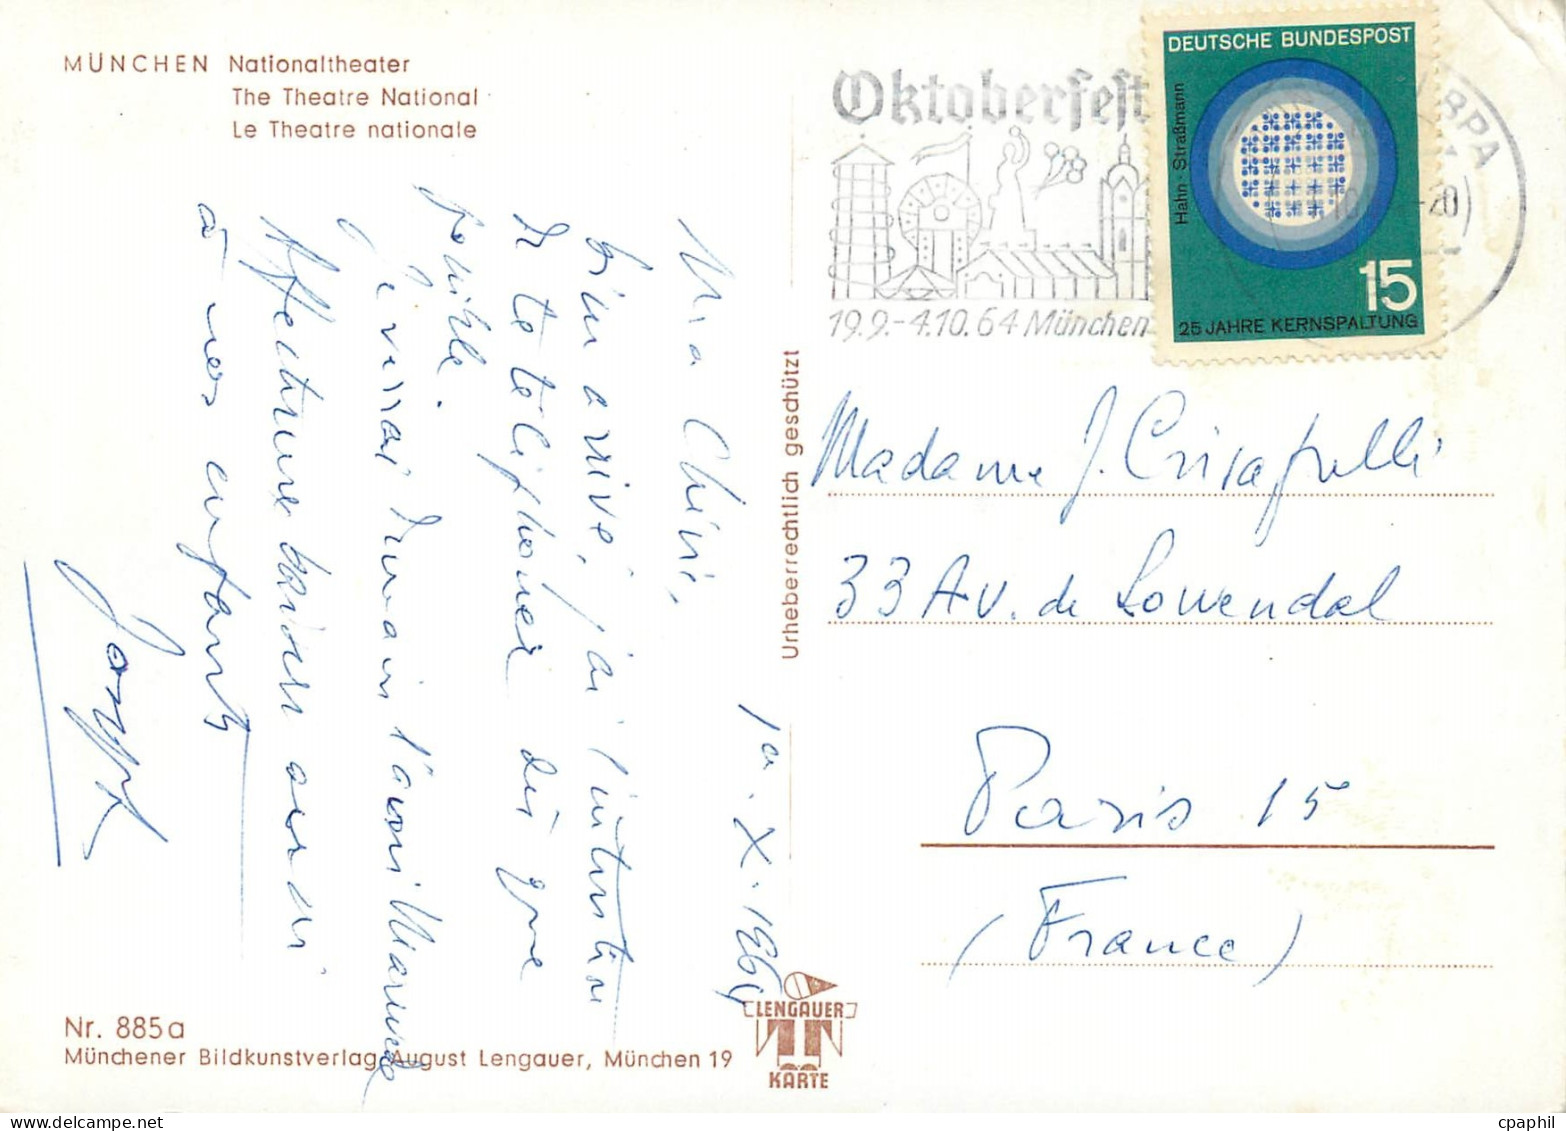 MÜNCHEN Nationaltheater
The Theatre National
Le Theatre nationale
1er. X. 1964
Ma Chérie,
bien arrivé, j'ai l'intention
de te téléphoner dès que
possible.
Je verrai demain l'avocat
Affectueux baisers aussi
à nos enfants
Joseph
Nr. 885a
Münchener Bildkunstverlag August Lengauer, München 19
Urheberrechtlich geschützt
LENGAUER
KARTE
Oktoberfest
19.9.-4.10.64 München
BPA
-20
DEUTSCHE BUNDESPOST
Hahn · Straßmann
15
25 JAHRE KERNSPALTUNG
Madame J. Crisafulli
33 Av. de Lowendal
Paris 15
(France)
cpaphil